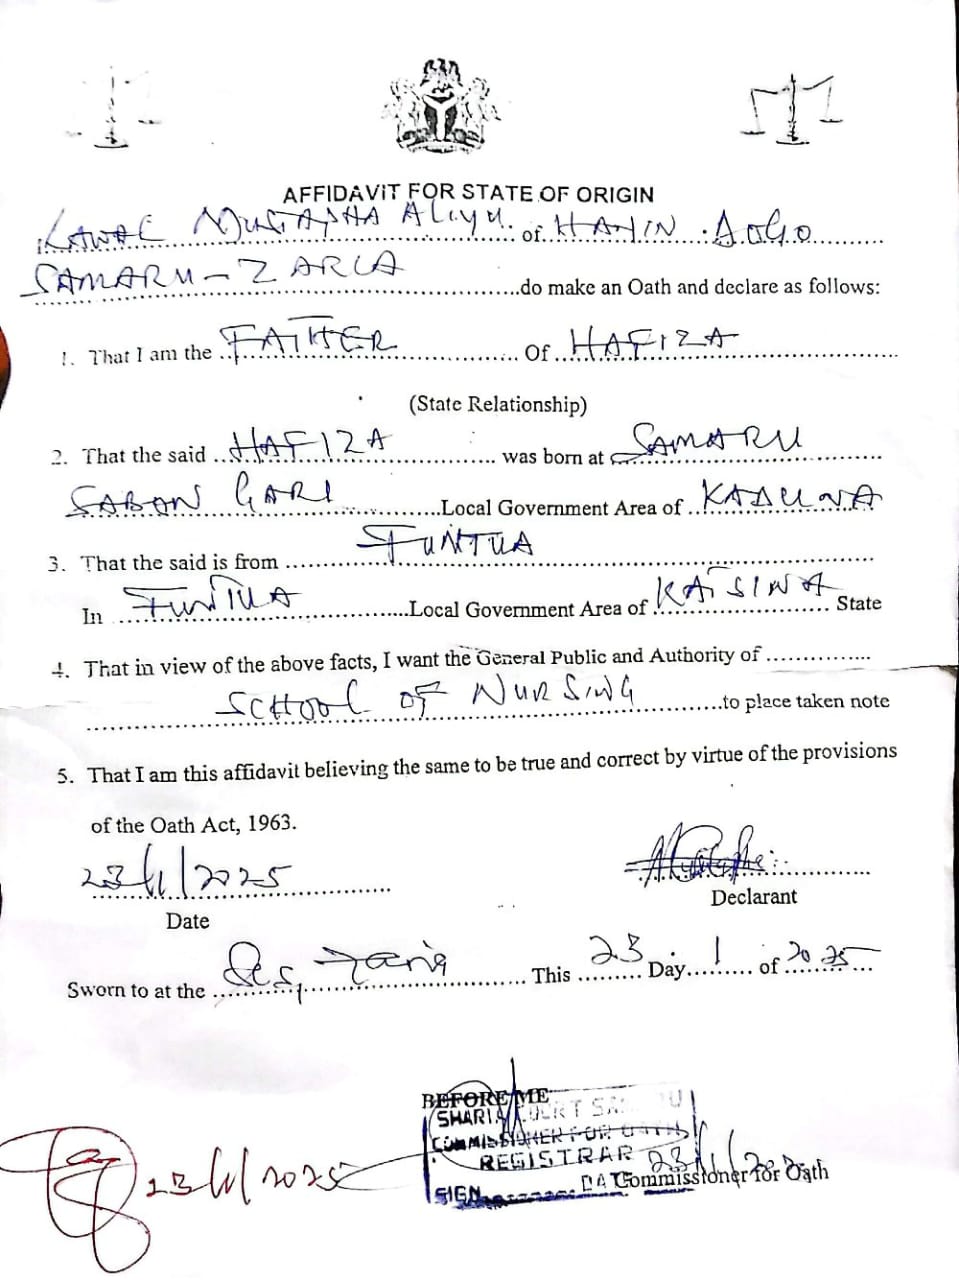 AFFIDAVIT FOR STATE OF ORIGIN
LAWAL MUSTAPHA ALIYU. of HAYIN .DOGO
SAMARU - ZARIA do make an Oath and declare as follows:
1. That I am the FATHER Of HAFIZA
(State Relationship)
2. That the said HAFIZA was born at SAMARU
SABON GARI Local Government Area of KADUNA
3. That the said is from FUNTUA
In FUNTUA Local Government Area of KATSINA State
4. That in view of the above facts, I want the General Public and Authority of
SCHOOL OF NURSING to place taken note
5. That I am this affidavit believing the same to be true and correct by virtue of the provisions
of the Oath Act, 1963.
23/1/2025
Date Declarant
Sworn to at the Zaria This 23 Day 1 of 2025
BEFORE ME
SHARIA COURT SAMARU
COMMISSIONER FOR OATHS
REGISTRAR 23/1/
SIGN DAT Commissioner for Oath
23/1/2025